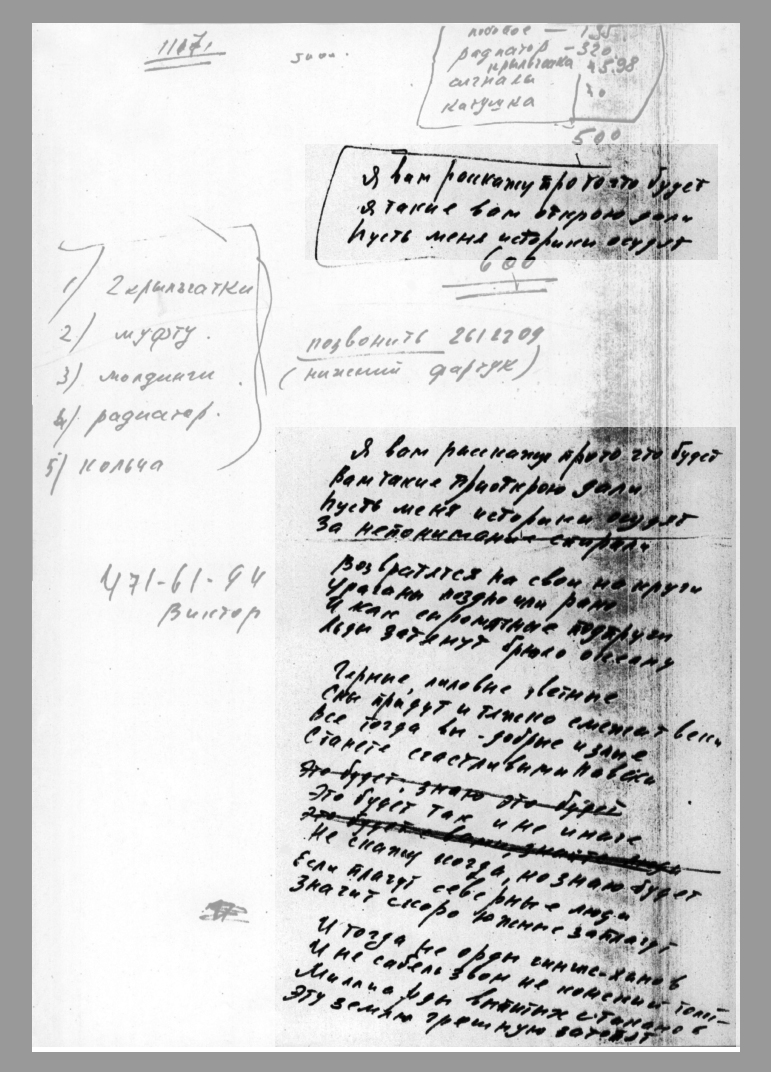 11171
500
лобовое — 135
радиатор — 320
крыльчатка 45.98
сигналы
катушка
40
500
Я вам расскажу про то что будет
Я такие вам открою дали
Пусть меня историки осудят
600
1) 2 крыльчатки
2) муфту.
3) молдинги
4) радиатор.
5) кольца
позвонить 2612209
(нижний фартук)
Я вам расскажу про то что будет
Вам такие приоткрою дали
Пусть меня историки осудят
За непонимание спирали
Возвратятся на свои на круги
Ураганы поздно или рано
И как сыромятные подпруги
Льды затянут брюхо океану
471-61-94
Виктор
Черные, лиловые цветные
Сны придут и тяжко смежат веки
Все тогда вы - добрые и злые
Станете счастливыми навеки
Это будет, знаю это будет
Это будет так и не иначе
Не скажу когда, но знаю будет
Если плачут северные люди
Значит скоро южные заплачут
И тогда не орды чингис-ханов
И не сабель звон не конский топот
Миллиарды выпитых стаканов
Эту землю грешную затопят